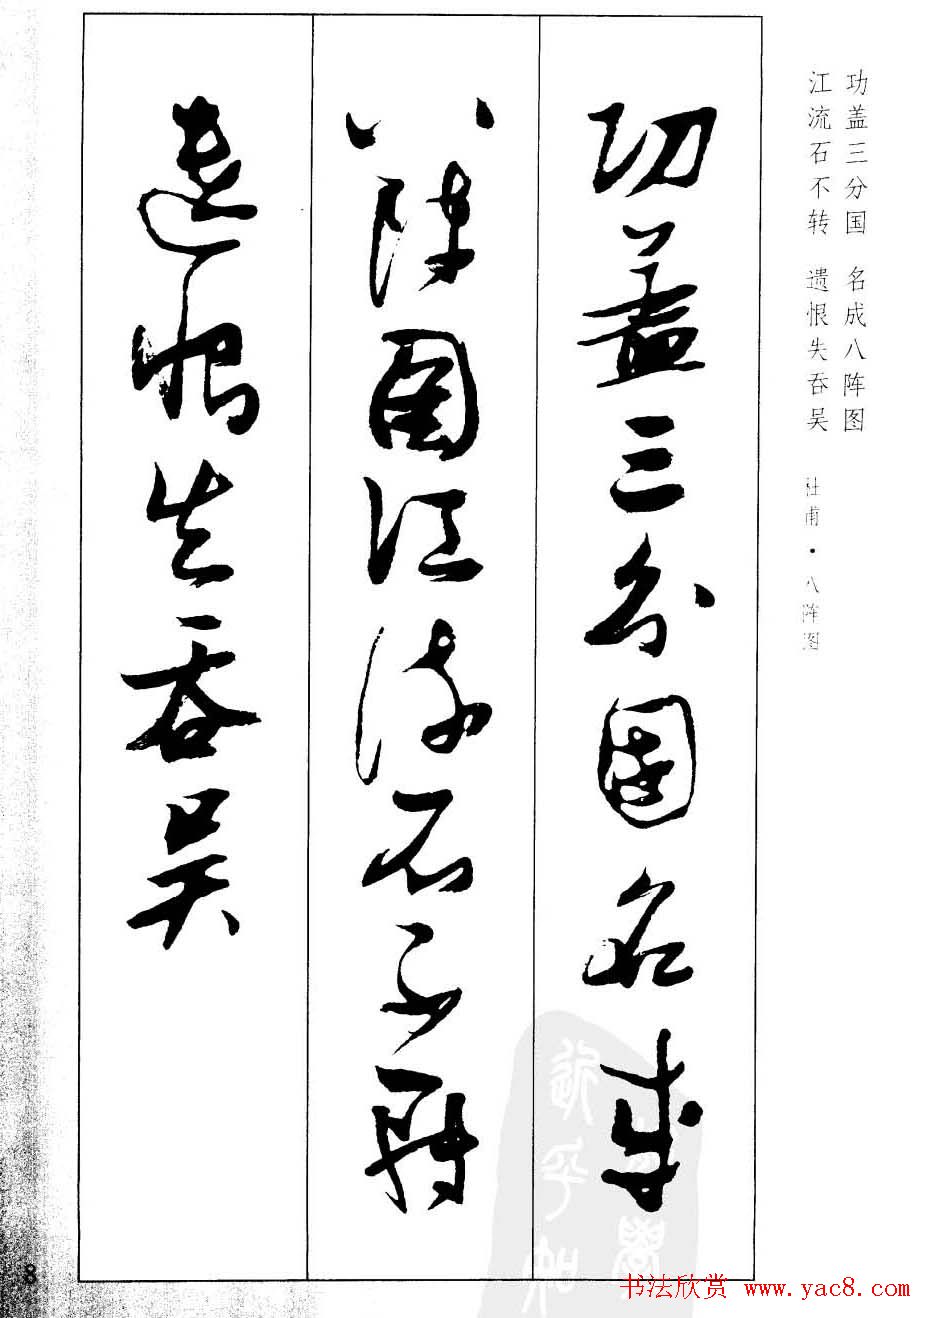 功盖三分国 名成八阵图
江流石不转 遗恨失吞吴
杜甫·八阵图
功蓋三分国名成
八陣图江流石不轉
遗恨失吞吴
8
书法欣赏 www.yac8.com